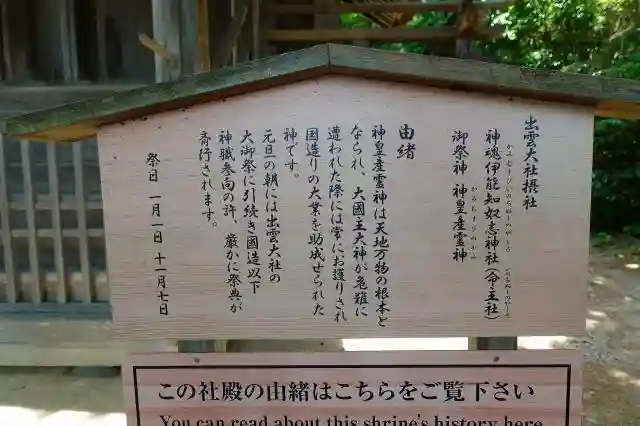 出雲大社摂社
神魂伊能知奴志神社(命主社)
かみむすびいのちぬしのかみのやしろ
いのちぬしのやしろ
御祭神 神皇産霊神
かみむすびのかみ
由緒
神皇産霊神は天地万物の根本と
なられ、大國主大神が危難に
遭われた際には常にお護りされ
国造りの大業を助成せられた
神です。
元旦の朝には出雲大社の
大御祭に引続き國造以下
神職参向の許、厳かに祭典が
斎行されます。
祭日 一月一日 十一月七日
この社殿の由緒はこちらをご覧下さい
You can read about this shrine's history here